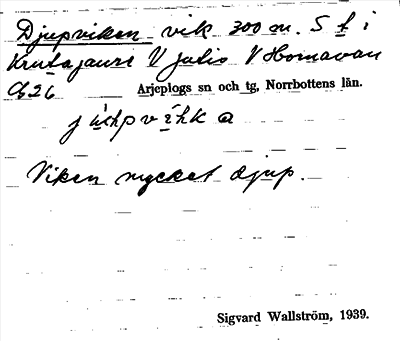 Djupviken vik 300 m. S f i
Krutajaure V Julis V Hornavan
C26
Arjeplogs sn och tg, Norrbottens län.
júhpvíhka
Viken mycket djup.
Sigvard Wallström, 1939.